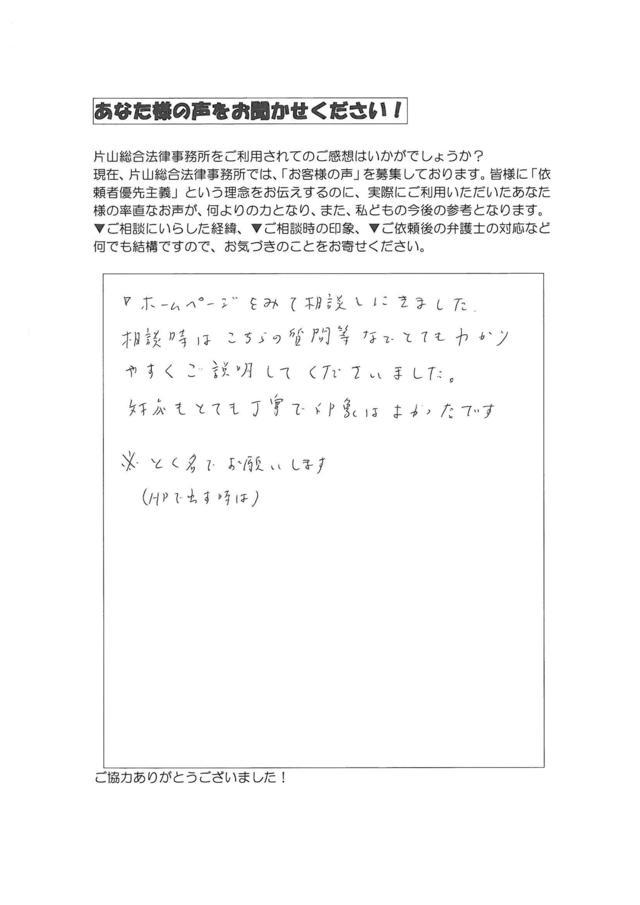 あなた様の声をお聞かせください！
片山総合法律事務所をご利用されてのご感想はいかがでしょうか？
現在、片山総合法律事務所では、「お客様の声」を募集しております。皆様に「依
頼者優先主義」という理念をお伝えするのに、実際にご利用いただいたあなた
様の率直なお声が、何よりの力となり、また、私どもの今後の参考となります。
▼ご相談にいらした経緯、▼ご相談時の印象、▼ご依頼後の弁護士の対応など
何でも結構ですので、お気づきのことをお寄せください。
▽ホームページをみて相談しにきました。
相談時はこちらの質問等なでとてもわかり
やすくご説明してくださいました。
対応もとても丁寧で印象はよかったです
※とく名でお願いします
（HPで出す時は）
ご協力ありがとうございました！